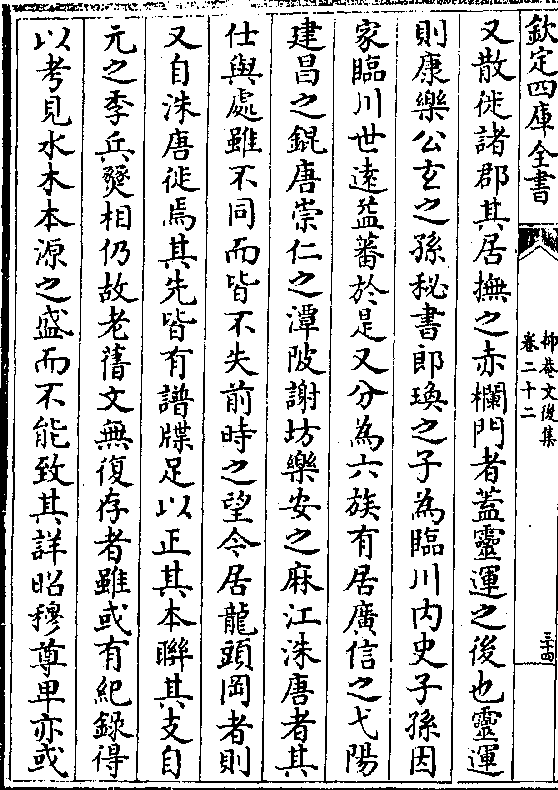 欽定四庫全書
抑菴文後集
卷二十二
三十四
又散徙諸郡其居撫之赤欄門者蓋靈運之後也靈運
則康樂公玄之孫秘書郎瑍之子為臨川内史子孫因
家臨川世逺益蕃於是又分為六族有居廣信之弋陽
建昌之錕唐崇仁之潭陂謝坊樂安之麻江洙唐者其
仕與處雖不同而皆不失前時之望今居龍頭岡者則
又自洙唐徙焉其先皆有譜牒足以正其本聯其支自
元之季兵燹相仍故老舊文無復存者雖或有紀錄得
以考見水木本源之盛而不能致其詳昭穆尊卑亦或